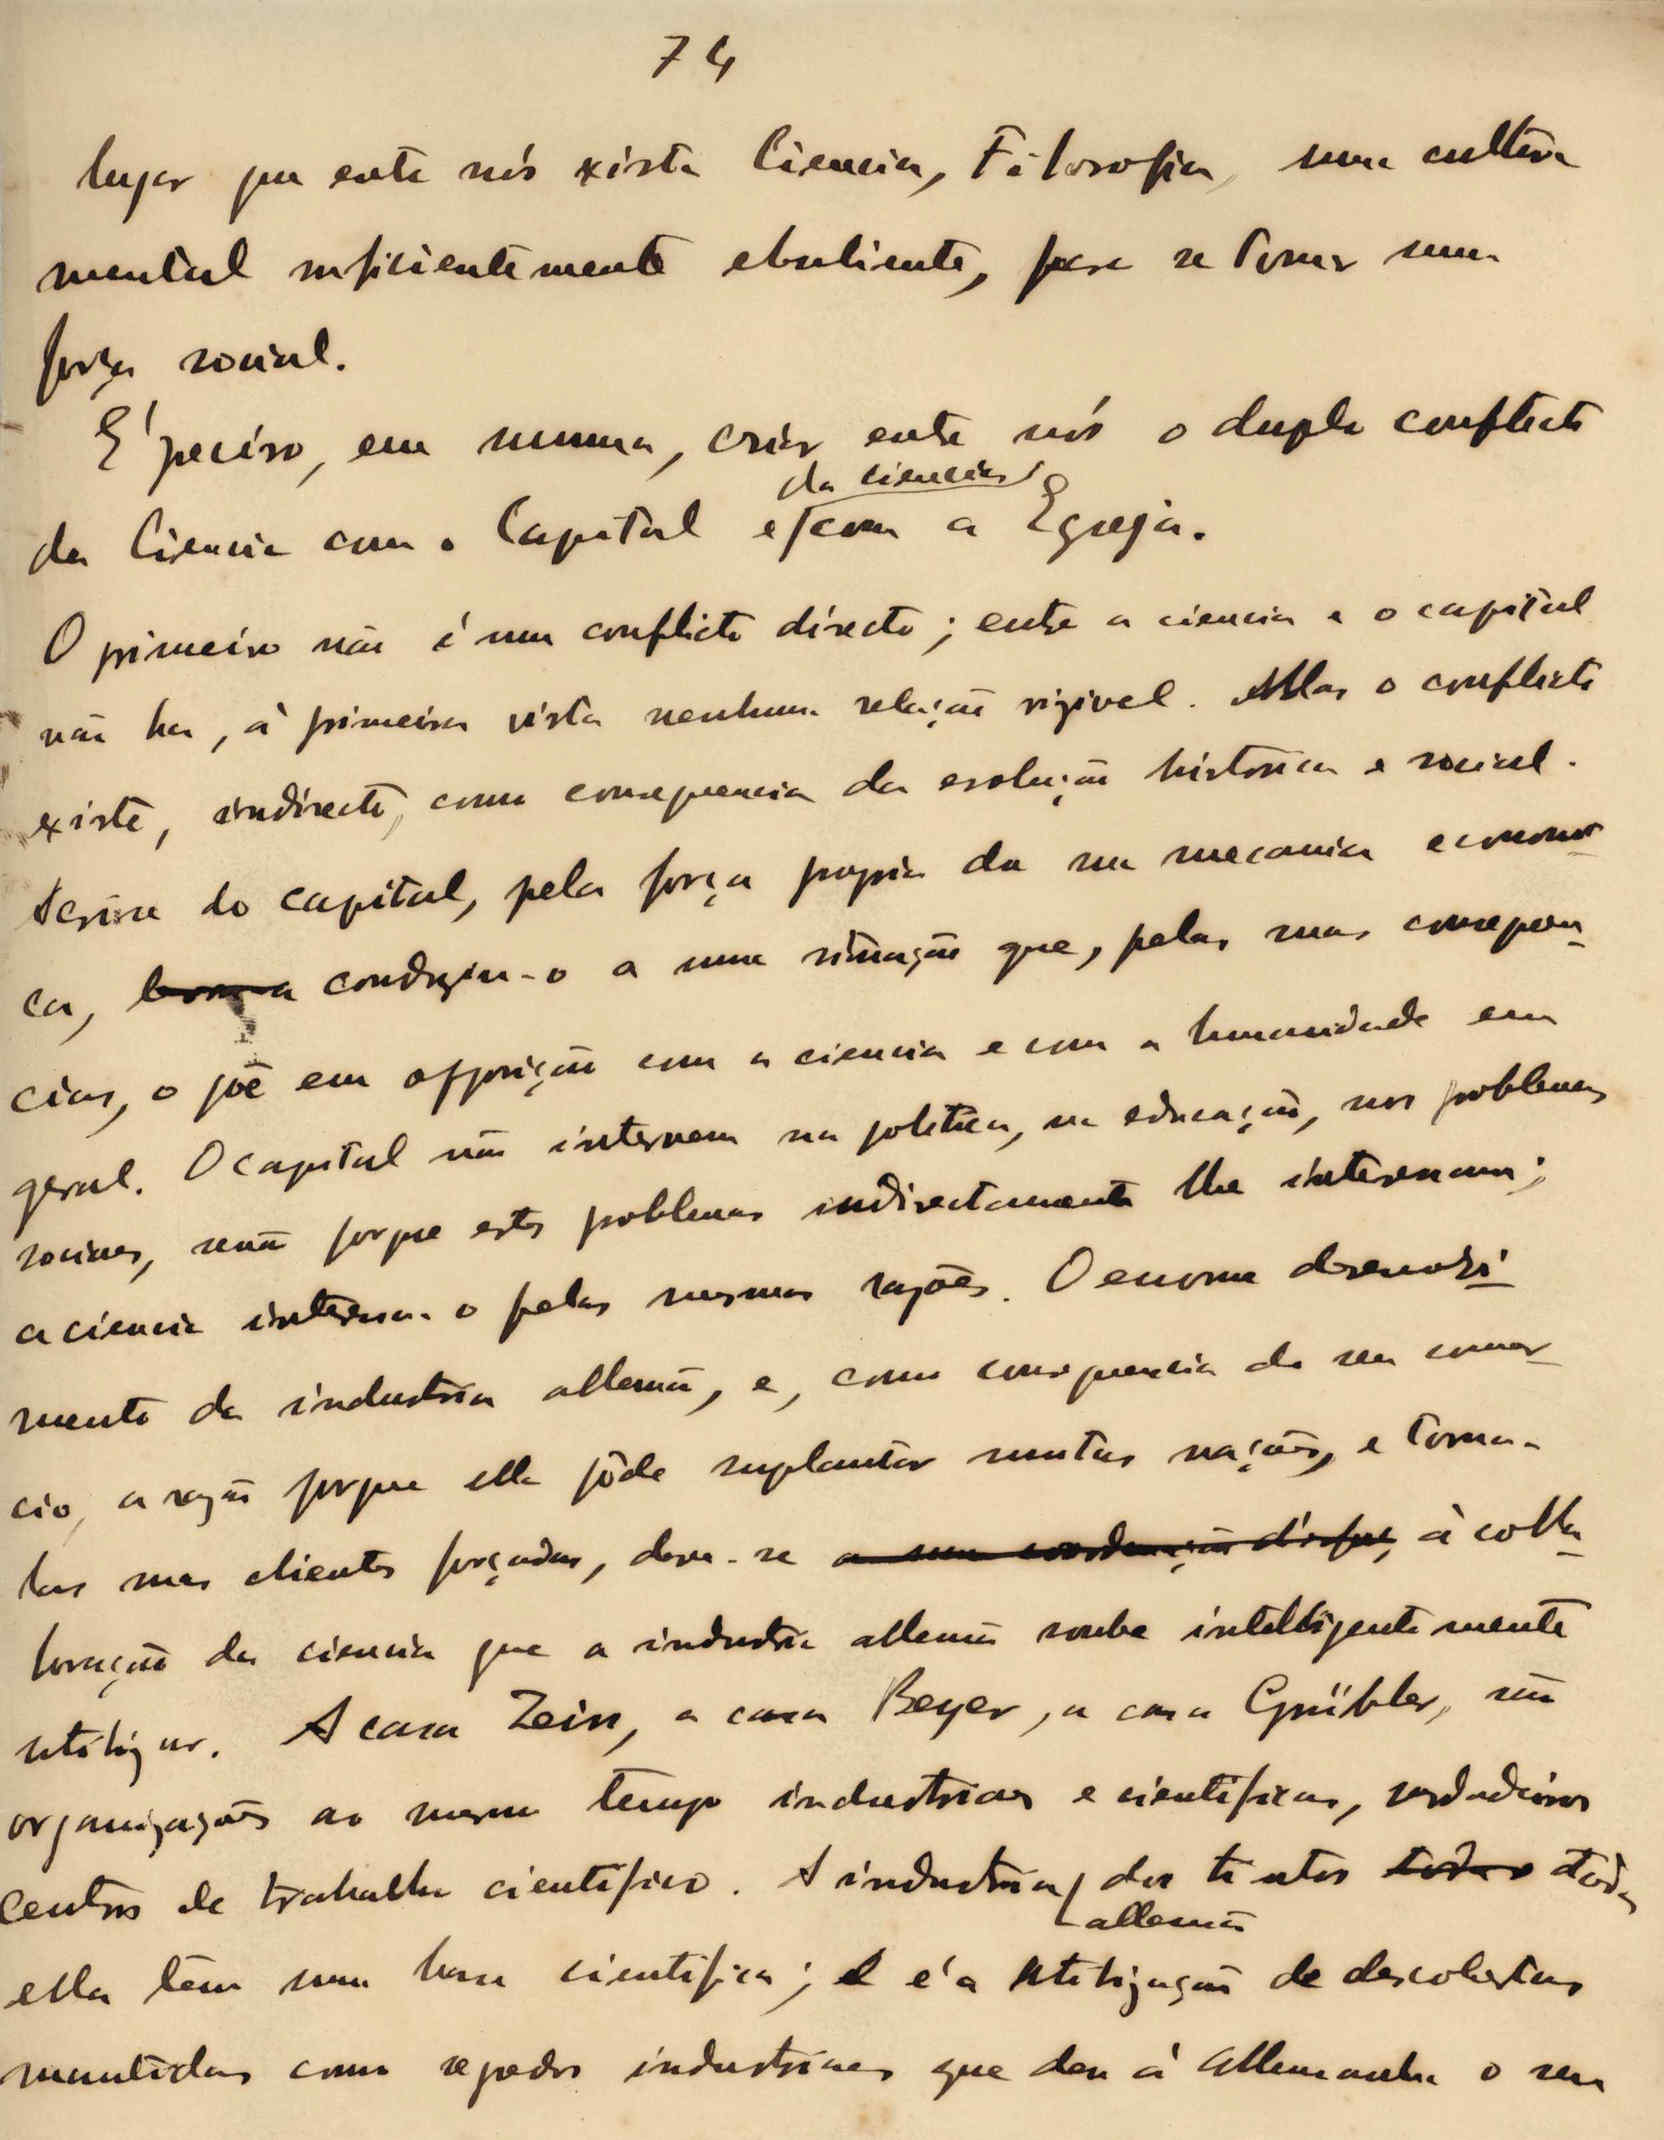 74
lugar que entre nós exista Ciencia, Filosofia, uma cultura
mental suficientemente ebuliente, para se tornar uma
força social.
E' preciso, em summa, criar entre nós o duplo conflicto
da sciencia
da Ciencia com o Capital e com a Egreja.
O primeiro não é um conflicto directo; entre a ciencia e o capital
não ha, á primeira vista nenhuma relação vizivel. Mas o conflicto
existe, indirecto, como consequencia da evolução historica e social.
A crise do capital, pela força propria da sua mecanica economi
ca, conduziu-o a uma situação que, pelas suas consequen
cias, o põe em opposição com a ciencia e com a humanidade em
geral. O capital não intervem na politica, na educação, nos problemas
sociaes, senão porque estes problemas indirectamente lhe interessam;
a ciencia interessa-o pelas mesmas razões. O enorme desenvolvi
mento da industria allemã, e, como consequencia do seu comer
cio, a razão porque ella pôde suplantar muitas nações, e torna-
las suas clientes forçadas, deve-se á colla
boração da ciencia que a industria allemã soube intelligentemente
utilizar. A casa Zeiss, a casa Beyer, a casa Grübler, são
organizações ao mesmo tempo industriaes e cientificas, verdadeiros
centros de trabalho cientifico. A industria das tintas toda
allemã
ella tem uma base cientifica; e é a utilização de descobertas
mantidas como segredos industriaes que deu á Allemanha o seu